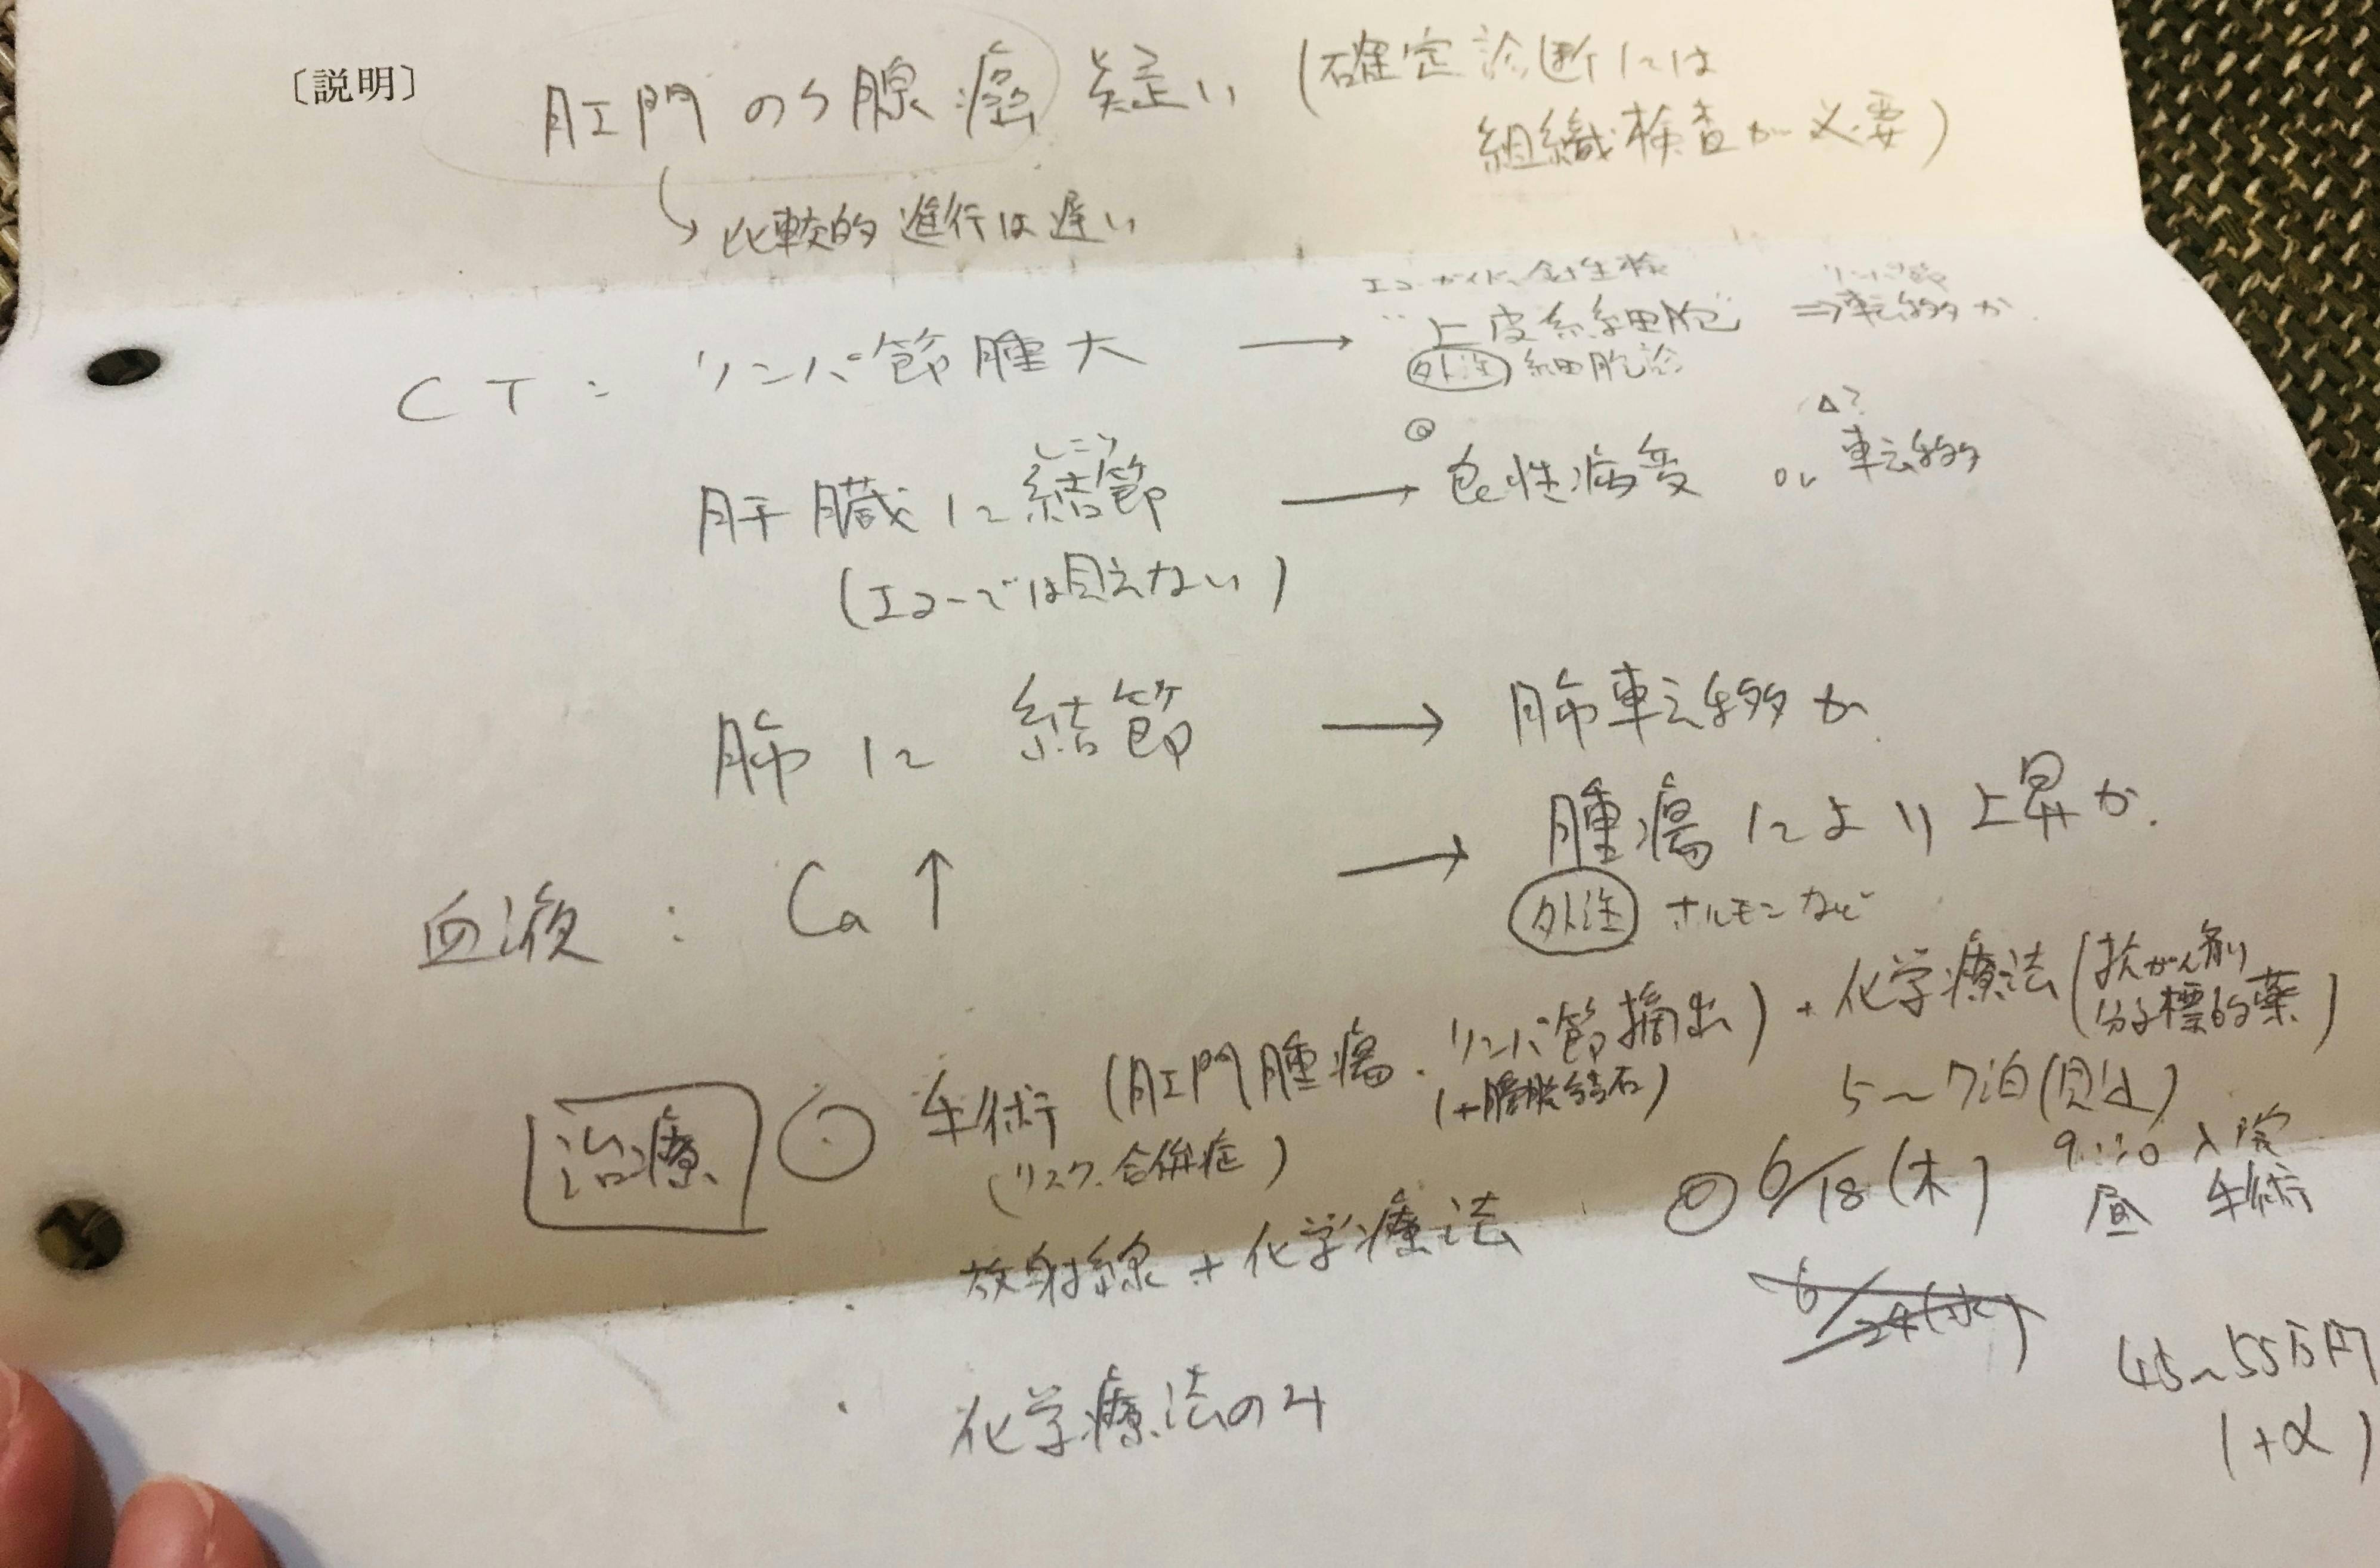 〔説明〕 肛門のう腺癌 疑い (確定診断には
組織検査が必要)
↳ 比較的 進行は遅い
エコーガイド 針生検 リンパ節
CT: リンパ節腫大 → 上皮系細胞 ⇒転移か
外注 細胞診
しこり ◎ △?
肝臓に結節 → 良性病変 or 転移
(エコーでは見えない)
肺に 結節 → 肺転移か
血液: Ca↑ → 腫瘍により上昇か.
外注 ホルモンなど
治療 ⊙ 手術 (肛門腫瘍・リンパ節摘出) + 化学療法 (抗がん剤
分子標的薬)
(+膀胱結石)
(リスク. 合併症)
5〜7泊(見込)
◎ 6/18(木) 9:30 入院
昼 手術
・ 放射線+化学療法
6/24(水)
45〜55万円
(+α)
・ 化学療法のみ